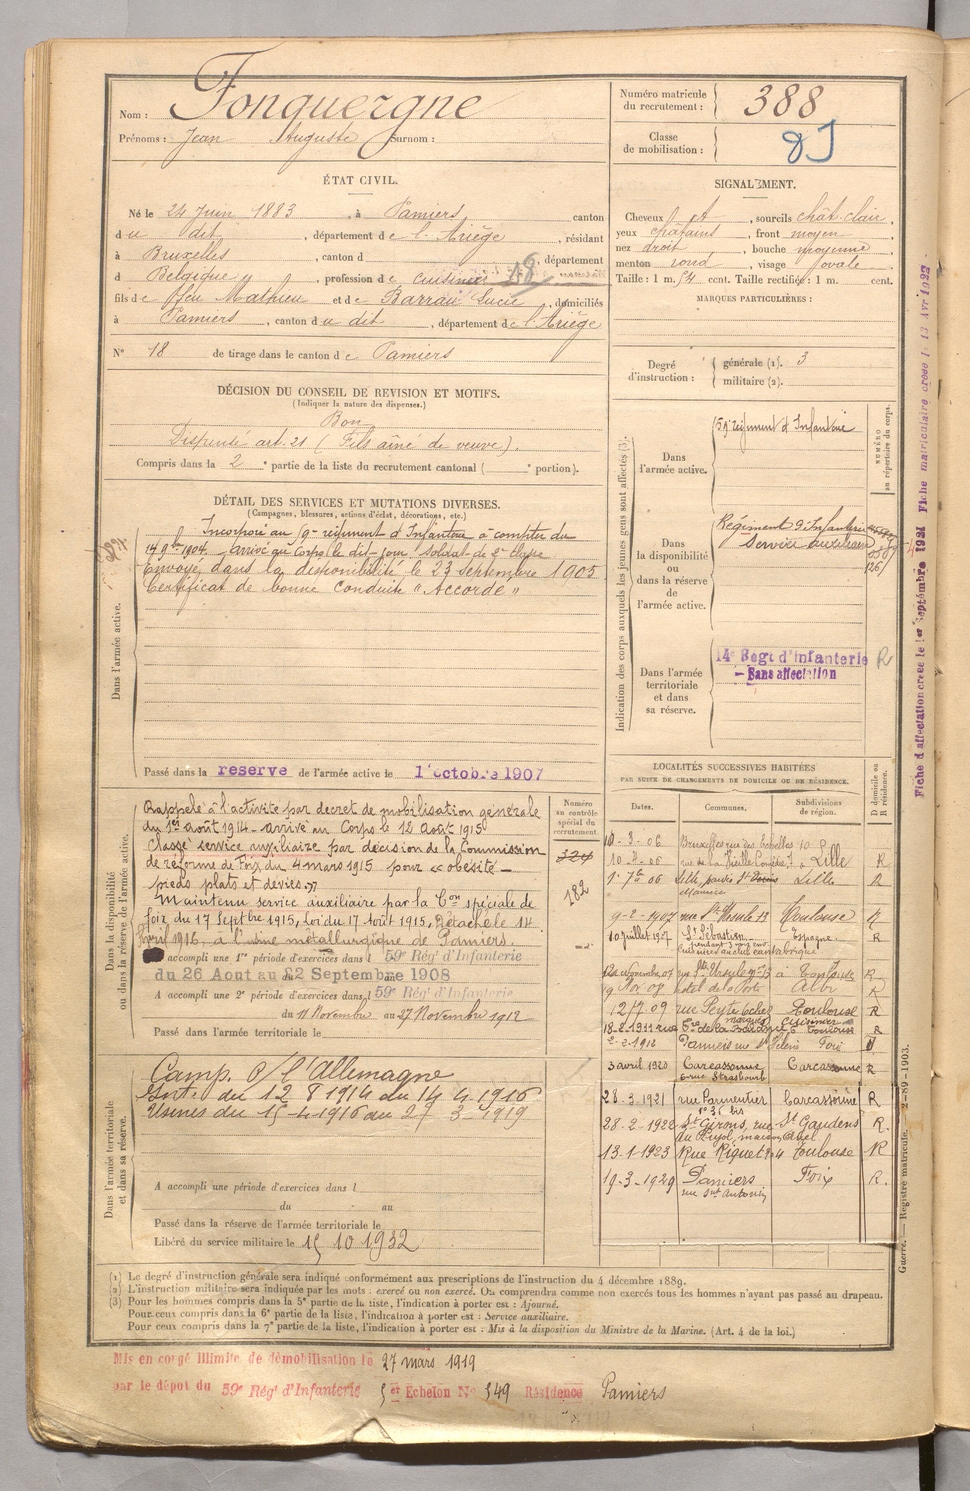 Nom : Fonquergne
Prénoms : Jean Auguste Surnom :
Numéro matricule du recrutement : 388
Classe de mobilisation :
ÉTAT CIVIL.
Né le 24 Juin 1883, à Pamiers canton
du dit, département de l'Ariège, résidant
à Bruxelles, canton d , département
d Belgique, profession de cuisinier
fils de feu Mathieu et de Barrau Lucie, domiciliés
à Pamiers, canton du dit, département de l'Ariège
N° 18 de tirage dans le canton de Pamiers
SIGNALEMENT.
Cheveux et, sourcils chât. clair,
yeux châtains, front moyen
nez droit, bouche moyenne
menton rond, visage ovale
Taille : 1 m. 54 cent. Taille rectifiée : 1 m. cent.
MARQUES PARTICULIÈRES :
Degré d'instruction : générale (1). 3
militaire (2).
DÉCISION DU CONSEIL DE REVISION ET MOTIFS.
(Indiquer la nature des dispenses.)
Bon
Dispensé art. 21 (Fils aîné de veuve).
Compris dans la 2e partie de la liste du recrutement cantonal ( e portion).
DÉTAIL DES SERVICES ET MUTATIONS DIVERSES.
(Campagnes, blessures, actions d'éclat, décorations, etc.)
Dans l'armée active.
Incorporé au 59e régiment d'Infanterie à compter du
14 9bre 1904, arrivé au Corps le dit jour, soldat de 2e classe
Envoyé dans la disponibilité le 23 septembre 1905
Certificat de bonne conduite "Accordé"
Passé dans la reserve de l'armée active le 1er octobre 1907
Indication des corps auxquels les jeunes gens sont affectés (3).
NUMÉRO au répertoire du corps.
Dans l'armée active.
59e régiment d'Infanterie
Dans la disponibilité ou dans la réserve de l'armée active.
Régiment d'Infanterie
Service auxiliaire
Dans l'armée territoriale et dans sa réserve.
14e Regt d'Infanterie R
- Sans affectation
Dans la disponibilité ou dans la réserve de l'armée active.
Rappelé à l'activité par décret de mobilisation générale
du 1er août 1914 - arrivé au Corps le 12 août 1915
Classé service auxiliaire par décision de la Commission
de réforme de Foix du 4 mars 1915 pour "obésité -
pieds plats et déviés."
Maintenu service auxiliaire par la Con spéciale de
Foix du 17 Septbre 1915, Loi du 17 Août 1915, Détaché le 14
Avril 1916, à l'usine métallurgique de Pamiers.
A accompli une 1re période d'exercices dans l 59e Rég' d'Infanterie
du 26 Aout au 22 Septembre 1908
A accompli une 2e période d'exercices dans l 59e Rég' d'Infanterie
du 11 Novembre au 27 Novembre 1912
Passé dans l'armée territoriale le
Numéro au contrôle spécial du recrutement.
324
182
Dans l'armée territoriale et dans sa réserve.
Camp. c/ l'Allemagne
Int. du 12 8 1914 au 14 4 1916
Usines du 15-4-1916 au 27 3 1919
A accompli une période d'exercices dans l
du au
Passé dans la réserve de l'armée territoriale le
Libéré du service militaire le 15 10 1932
LOCALITÉS SUCCESSIVES HABITÉES
PAR SUITE DE CHANGEMENTS DE DOMICILE OU DE RÉSIDENCE.
Dates. Communes. Subdivisions de région. D domicile ou R résidence.
10-3-06 Bruxelles rue des Echelles 10
10-7-06 Lille R
1er 7bre 06 Lille Lille R
9-2-1907 rue Ste Ursule 13 Toulouse R
10 juillet 1907 St Sébastien Espagne R
12 Novembre 07 rue Ste Ursule no 13 à Toulouse R
19 Nov 08 hotel de la Poste Albi R
12/7-09 rue Peyrolières Toulouse R
18-2-1911 Toulouse R
2-2-1912 Pamiers Foix
3 avril 1920 Carcassonne Carcassonne R
6 rue Strasbourg
28-3-1921 rue Parmentier Carcassonne R
no 36 bis
28-2-1922 St Girons, rue St Gaudens R.
du Pujol, maison Abel
13-1-1923 Rue Riquet 24 Toulouse R
19-3-1929 Pamiers Foix R.
rue Snt Antonin
(1) Le degré d'instruction générale sera indiqué conformément aux prescriptions de l'instruction du 4 décembre 1889.
(2) L'instruction militaire sera indiquée par les mots : exercé ou non exercé. On comprendra comme non exercés tous les hommes n'ayant pas passé au drapeau.
(3) Pour les hommes compris dans la 5e partie de la liste, l'indication à porter est : Ajourné.
Pour ceux compris dans la 6e partie de la liste, l'indication à porter est : Service auxiliaire.
Pour ceux compris dans la 7e partie de la liste, l'indication à porter est : Mis à la disposition du Ministre de la Marine. (Art. 4 de la loi.)
Mis en congé illimité de démobilisation le 27 mars 1919
par le dépot du 59e Rég' d'Infanterie 5 er Echelon No 549 Résidence Pamiers
Fiche d'affectation créée le 1er Septembre 1921 Fiche matriculaire créée le 13 Avr 1922
Guerre. — Registre matricule. — 2-89-1903.